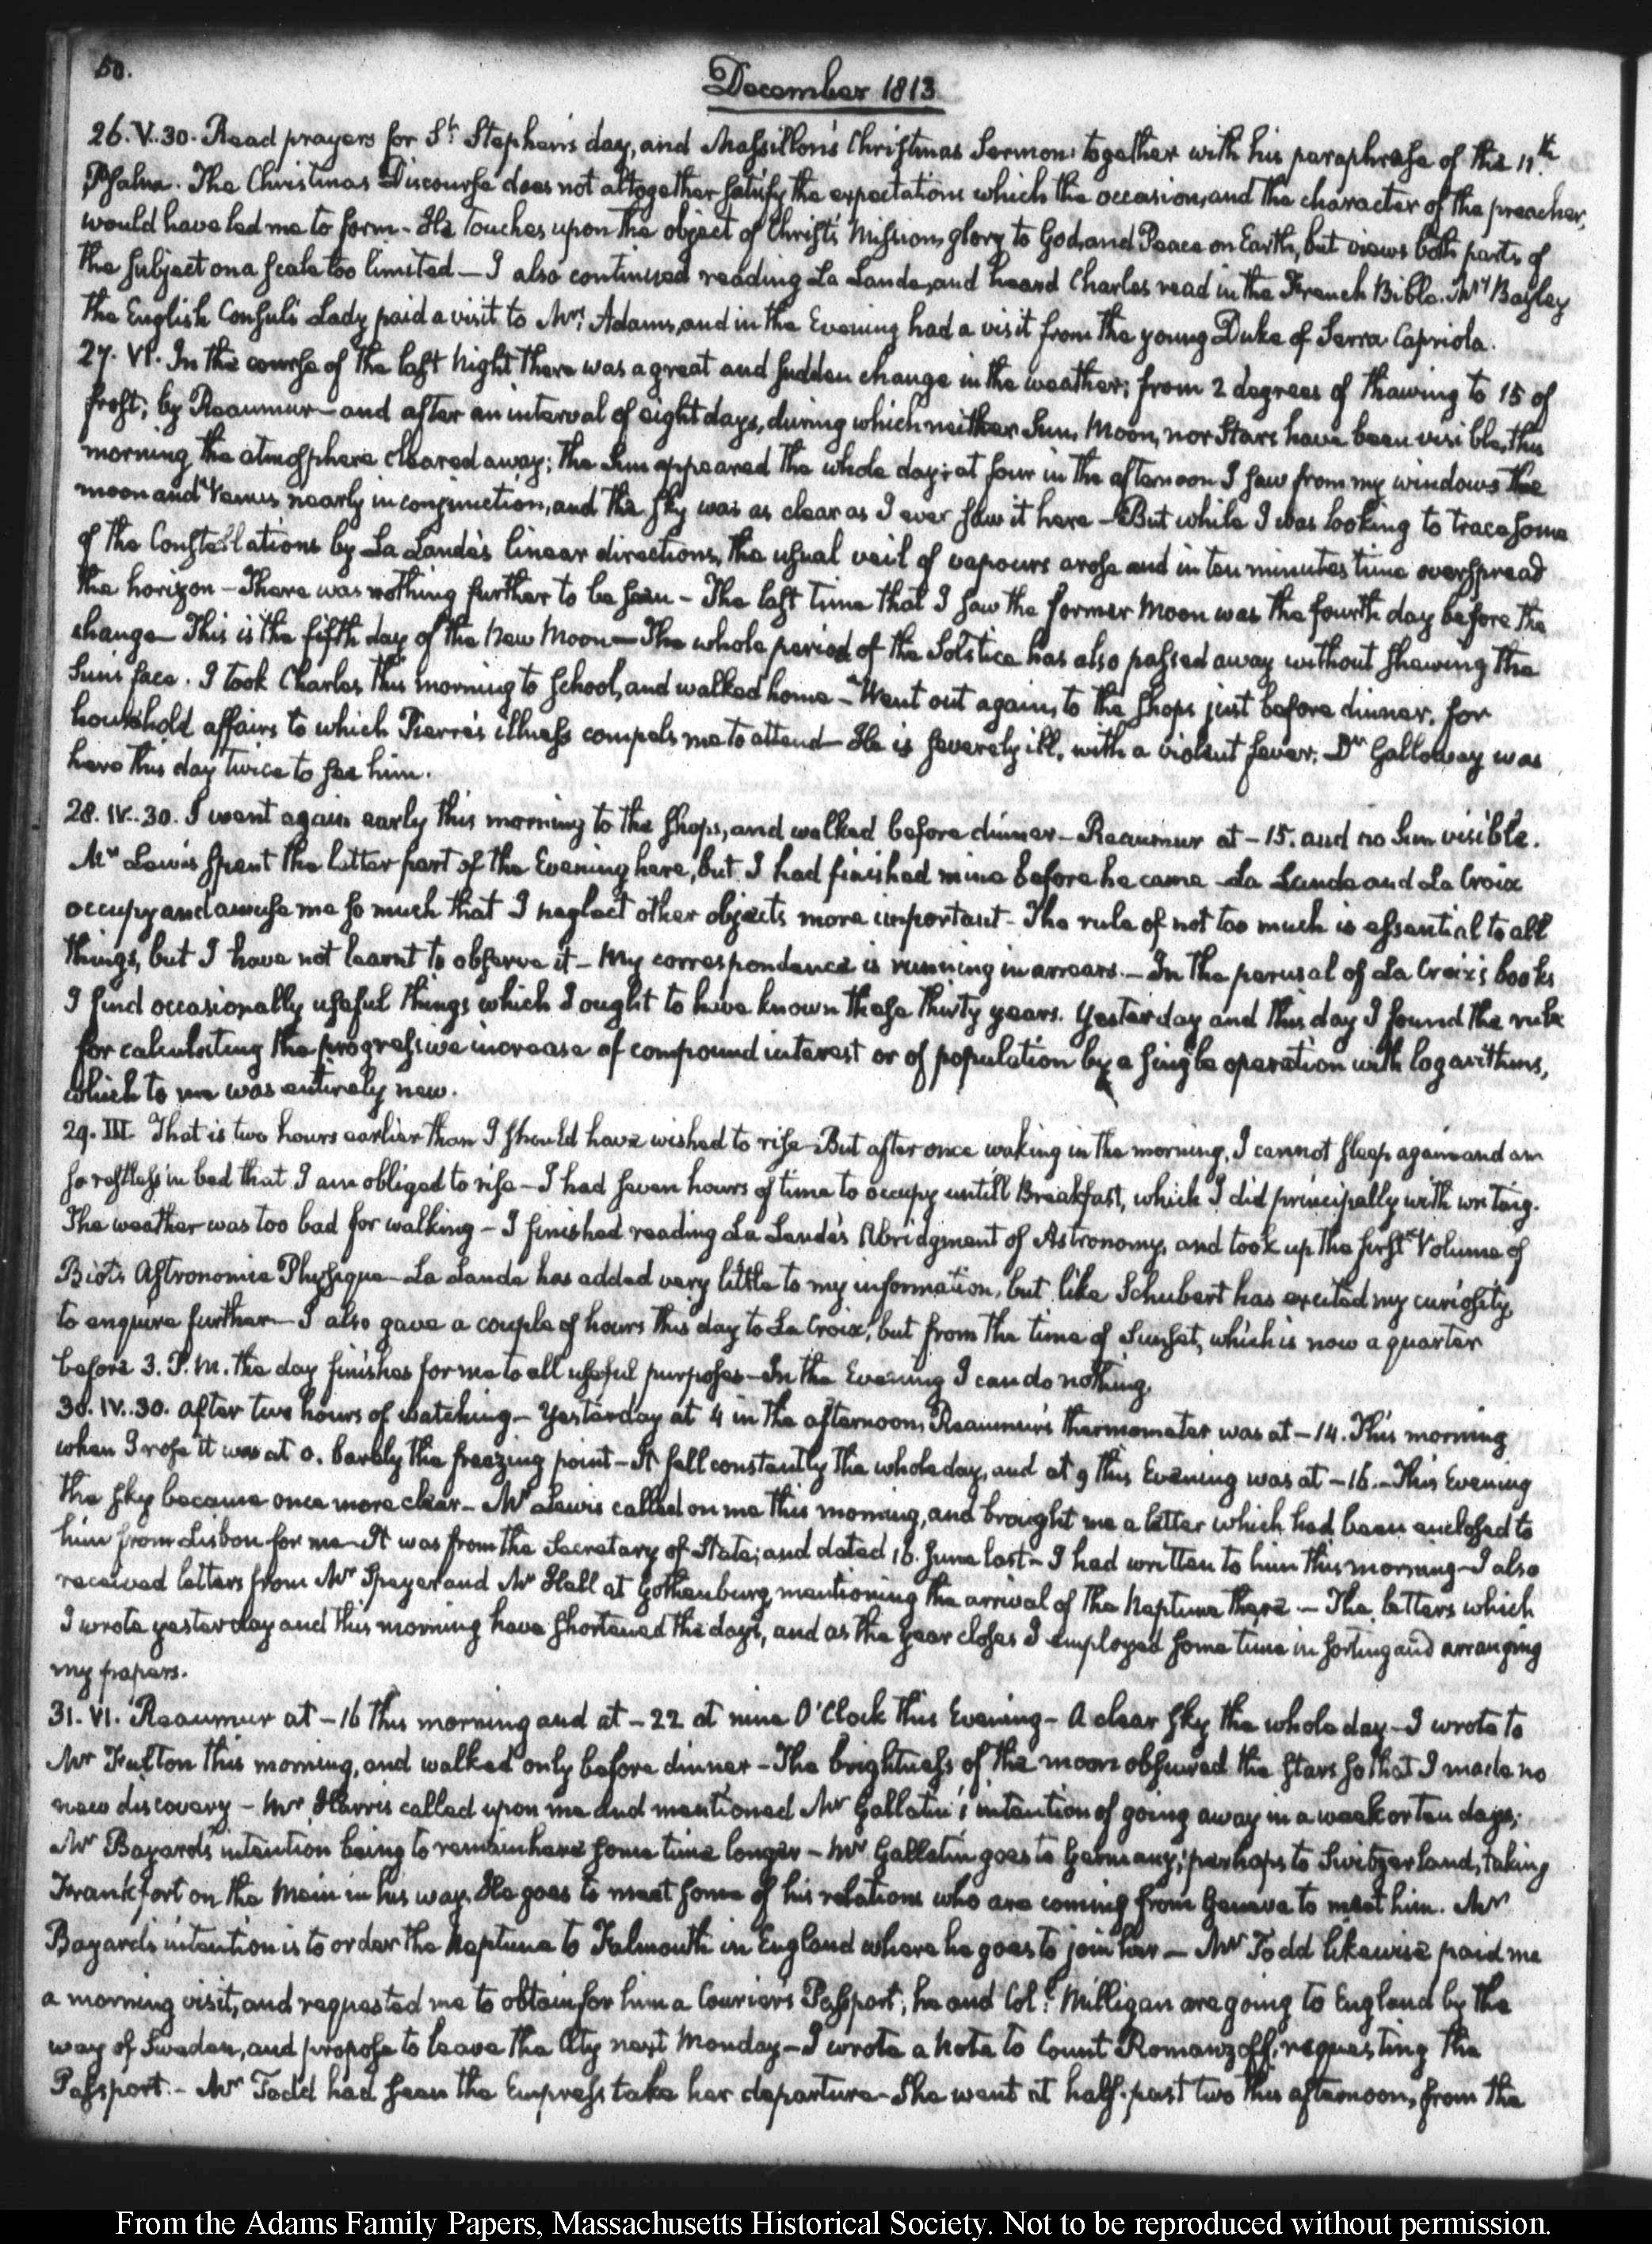 50.
December 1813
26. V.30. Read prayers for St. Stephen's day, and Massillon's Christmas Sermon; together with his paraphrase of the 11th.
Psalm. The Christmas Discourse does not altogether satisfy the expectations which the occasion, and the character of the preacher,
would have led me to form— He touches upon the object of Christ's Mission, glory to God, and Peace on Earth, but views both parts of
the subject on a scale too limited— I also continued reading La Lande, and heard Charles read in the French Bible. Mrs. Bayley
the English Consul's Lady paid a visit to Mrs. Adams, and in the Evening had a visit from the young Duke of Serra Capriola.
27. VI. In the course of the last Night there was a great and sudden change in the weather; from 2 degrees of thawing to 15 of
frost, by Reaumur— and after an interval of eight days, during which neither Sun, Moon, nor Stars have been visible, this
morning the atmosphere cleared away; the Sun appeared the whole day; at four in the afternoon I saw from my windows the
moon and Venus nearly in conjunction, and the sky was as clear as I ever saw it here— But while I was looking to trace some
of the Constellations by La Lande's linear directions, the usual veil of vapours arose and in ten minutes time overspread
the horizon— There was nothing further to be seen— The last time that I saw the former Moon was the fourth day before the
change— This is the fifth day of the New Moon— The whole period of the Solstice has also passed away without shewing the
Sun's face. I took Charles this morning to School, and walked home— Went out again, to the shops just before dinner, for
household affairs to which Pierre's illness compels me to attend— He is severely ill, with a violent fever. Dr Galloway was
here this day twice to see him.
28. IV.30. I went again early this morning to the shops, and walked before dinner— Reaumur at -15. and no Sun visible.
Mr Lewis spent the latter part of the Evening here, but I had finished mine before he came— La Lande and La Croix
occupy and amuse me so much that I neglect other objects more important— The rule of not too much is essential to all
things, but I have not learnt to observe it— My correspondence is running in arrears.— In the perusal of La Croix's books
I find occasionally useful things which I ought to have known these thirty years. Yesterday and this day I found the rule
for calculating the progressive increase of compound interest or of population by a single operation with logarithms,
which to me was entirely new.
29. III. That is two hours earlier than I should have wished to rise— But after once waking in the morning, I cannot sleep again and am
so restless in bed that I am obliged to rise— I had seven hours of time to occupy untill Breakfast, which I did principally with writing.
The weather was too bad for walking— I finished reading La Lande's Abridgment of Astronomy, and took up the first Volume of
Biot's Astronomie Physique— La Lande has added very little to my information, but like Schubert has excited my curiosity,
to enquire further— I also gave a couple of hours this day to La Croix, but from the time of Sunset, which is now a quarter
before 3. P.M. the day finishes for me to all useful purposes— In the Evening I can do nothing.
30. IV.30. after two hours of watching.— Yesterday at 4 in the afternoon, Reaumur's thermometer was at -14. This morning
when I rose it was at 0. barely the freezing point— It fell constantly the whole day, and at 9 this Evening was at -16.— This Evening
the sky became once more clear— Mr Lewis called on me this morning, and brought me a letter which had been enclosed to
him from Lisbon for me— It was from the Secretary of State; and dated 16. June last— I had written to him this morning— I also
received letters from Mr Speyer and Mr Hall at Gothenburg, mentioning the arrival of the Neptune there.— The letters which
I wrote yesterday and this morning have shortened the days, and as the year closes I employed some time in sorting and arranging
my papers.
31. VI. Reaumur at -16 this morning and at -22 at nine O'Clock this Evening— A clear sky the whole day— I wrote to
Mr Fulton this morning, and walked only before dinner— The brightness of the moon obscured the stars so that I made no
new discovery— Mr Harris called upon me and mentioned Mr Gallatin's intention of going away in a week or ten days;
Mr Bayard's intention being to remain here some time longer— Mr Gallatin goes to Germany; perhaps to Switzerland, taking
Frankfort on the Mein in his way. He goes to meet some of his relations who are coming from Geneva to meet him. Mr
Bayard's intention is to order the Neptune to Falmouth in England where he goes to join her— Mr Todd likewise paid me
a morning visit, and requested me to obtain for him a Courier's Passport; he and Coll. Milligan are going to England by the
way of Sweden, and propose to leave the City next Monday— I wrote a Note to Count Romanzoff, requesting the
Passport.— Mr Todd had seen the Empress take her departure— She went at half-past two this afternoon, from the
From the Adams Family Papers, Massachusetts Historical Society. Not to be reproduced without permission.